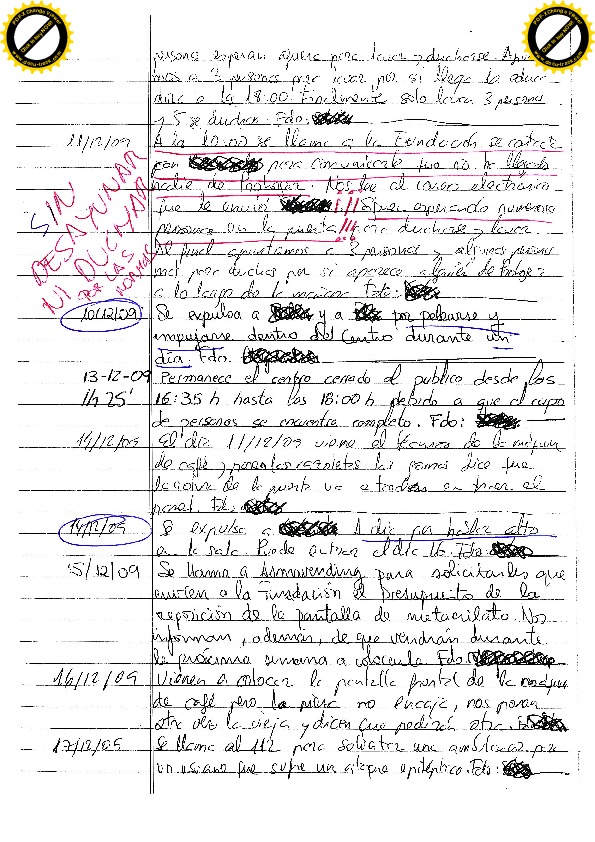 personas esperan afuera para lavar y ducharse.
mos a 3 personas para lavar por si llega la
a la 18:00 Finalmente solo lava 3 personas
y 5 se duchan. Fdo:
11/12/09 A la 10:00 se llama a la Fundación se
por para comunicarle que no ha llegado
nadie de. Nos lee el correo electrónico
que le envió. Siguen esperando numerosas
personas en la puerta para ducharse y lavar.
Al final apuntamos a 3 personas y algunas personas
mas para duchas por si aparece alguien de
a lo largo de la mañana Fdo:
SIN
DESAYUNAR
NI DUCHAR
POR LAS
10/12/09 Se expulsa a y a por pelearse y
empujarse dentro del Centro durante un
día. Fdo.
13-12-09 Permanece el centro cerrado al publico desde las
16:35 h hasta las 18:00 h debido a que el cupo
de personas se encuentra completo. Fdo:
14/12/09 El día 11/12/09 viene el técnico de la máquina
de café y pone las
de la puerta va a tener en traer el
panel. Fdo.
14/12/09 Se expulsa a 1 dia por hablar alto
en la sala. Puede entrar el día 16. Fdo:
15/12/09 Se llama a para solicitarles que
envíen a la Fundación el presupuesto de la
reposición de la pantalla de metacrilato. Nos
informan, además, de que vendrán durante
la próxima semana a colocarla Fdo:
16/12/09 Vienen a colocar la pantalla frontal de la maquina
de café pero la pieza no encaja, nos ponen
otra vez la vieja y dicen que pedirán otra.
17/12/09 Se llama al 112 para solicitar una ambulancia por
un usuario que sufre un ataque epiléptico. Fdo: